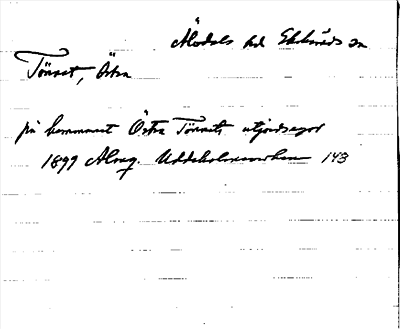 Älvdals hd Ekshärads sn
Tönnet, Östra
på hemmanet Östra Tönnets utjordsägor
1899 Alvag. Uddeholmsverken 143